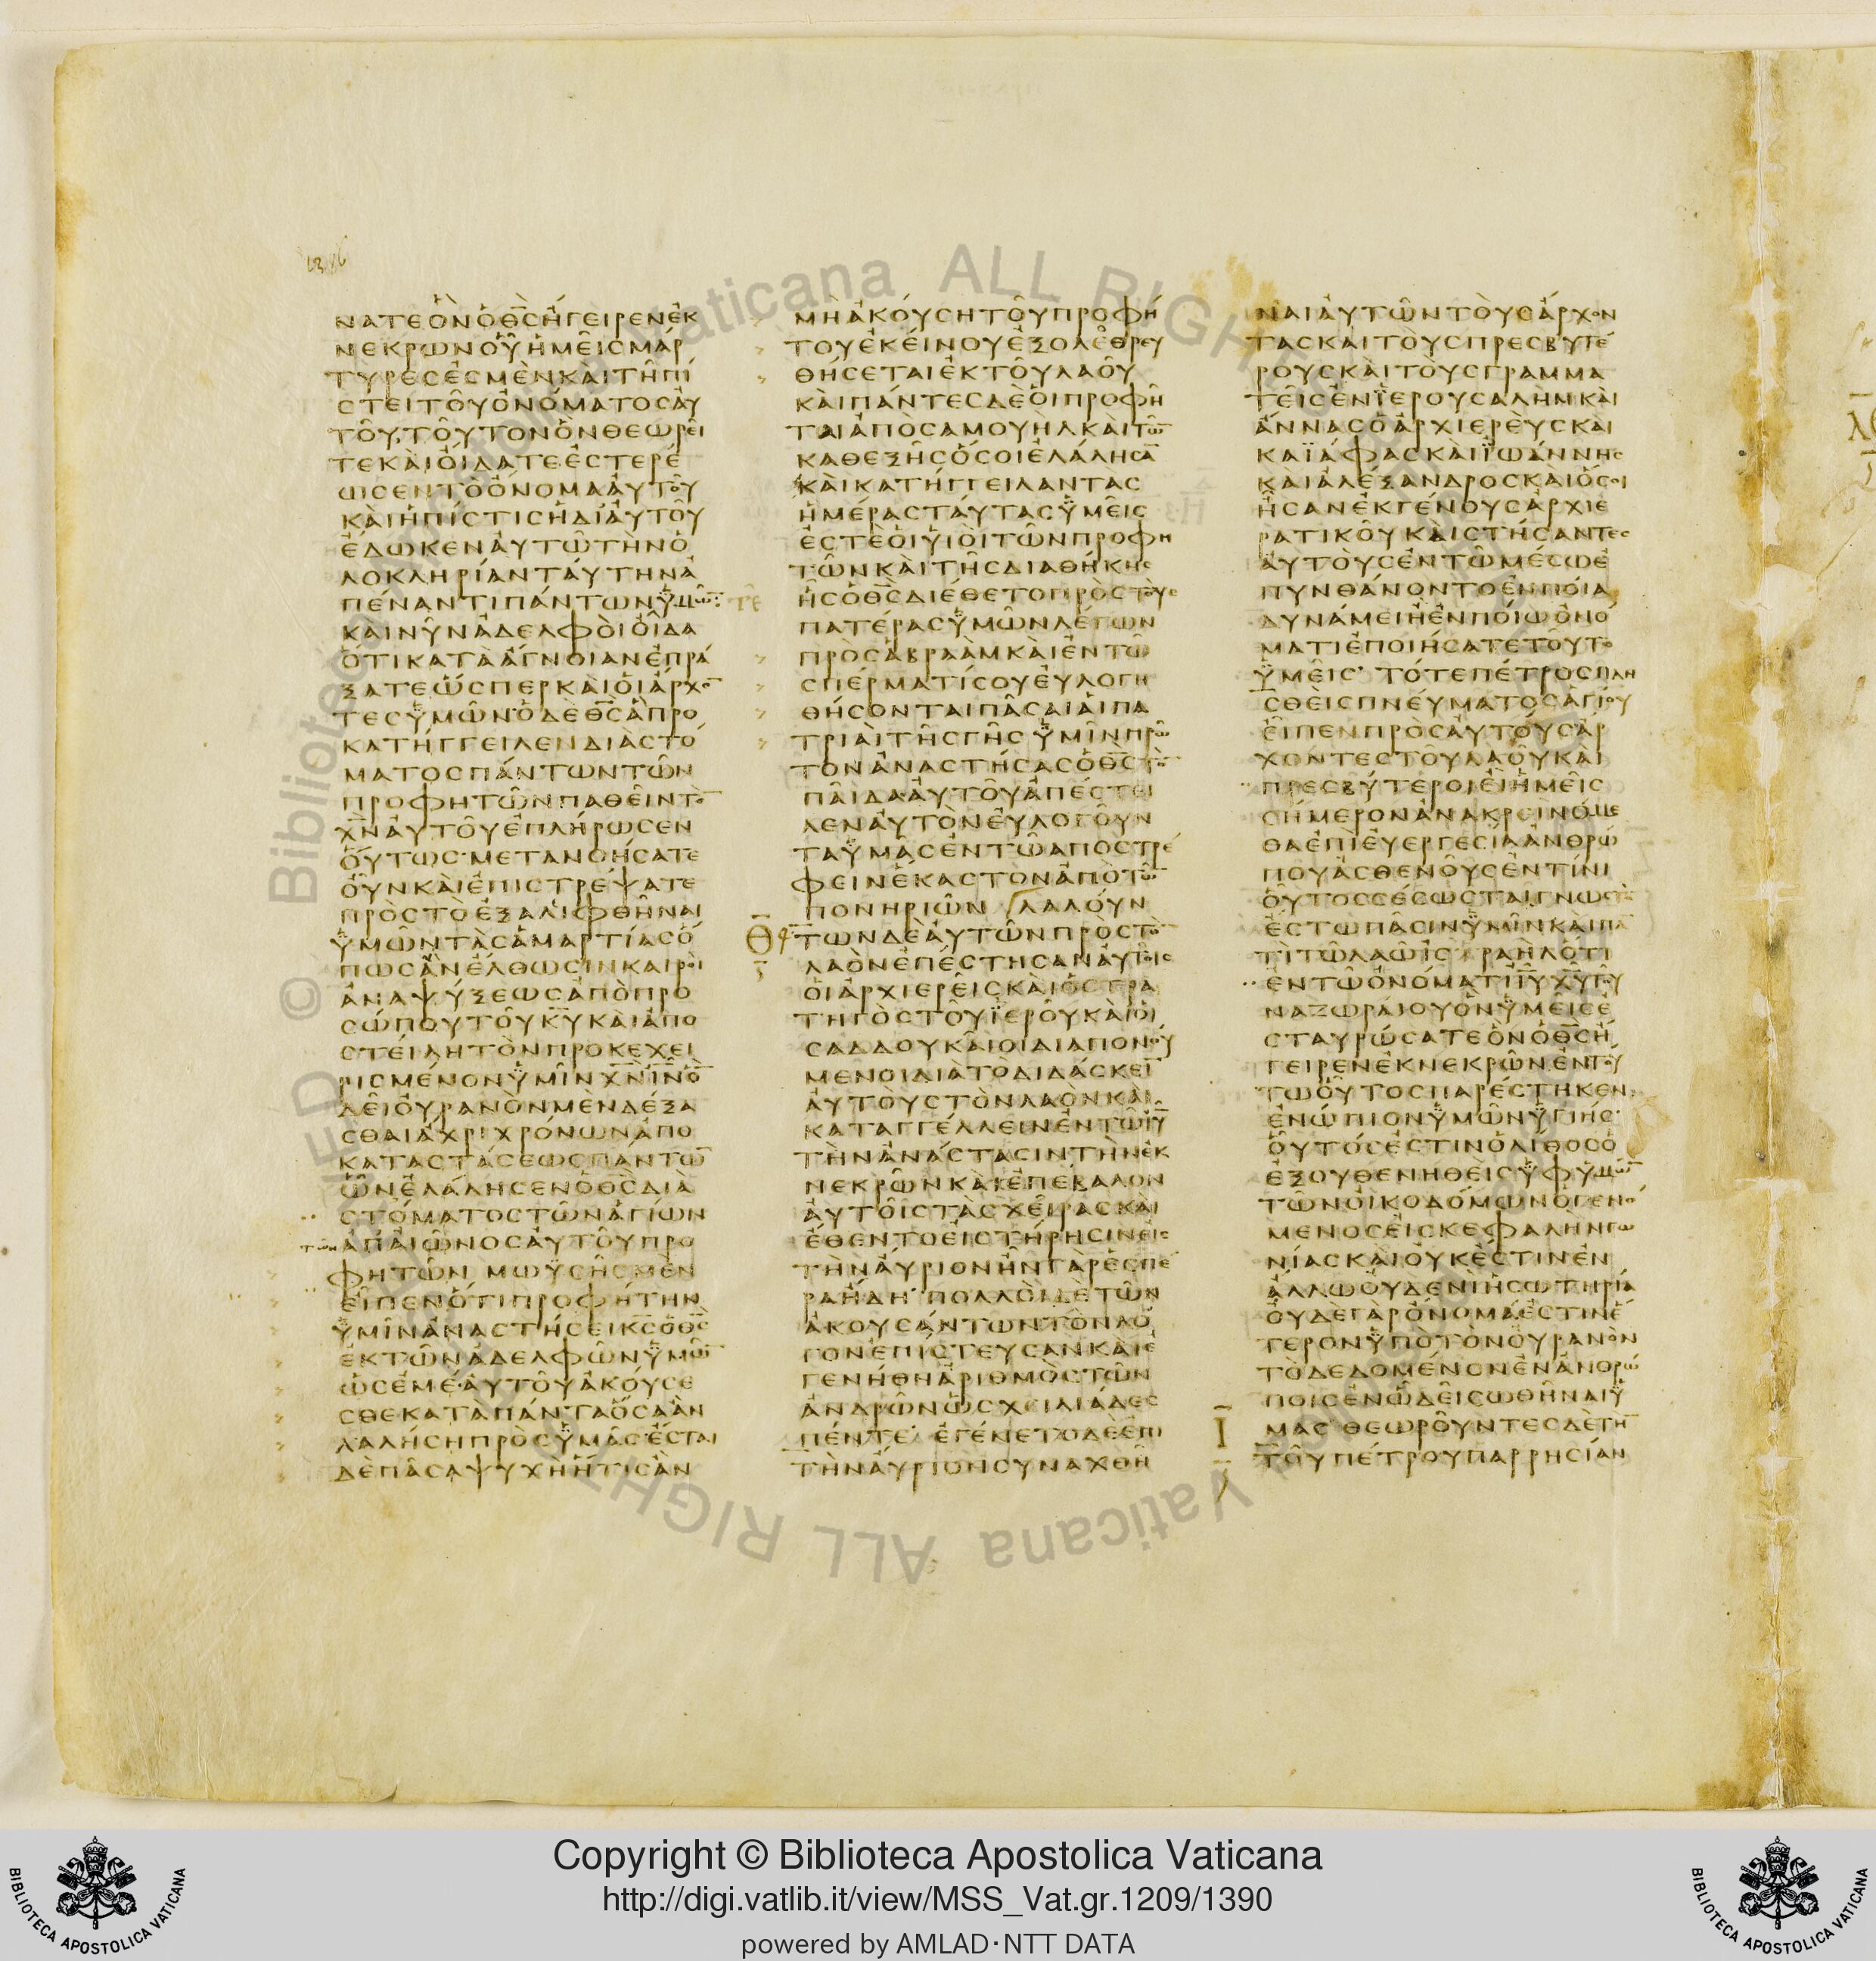 ΝΑΤΕΟΝΟΘΣΗΓΕΙΡΕΝΕΚ
ΝΕΚΡΩΝΟΥΗΜΕΙΣΜΑΡ
ΤΥΡΕΣΕΣΜΕΝΚΑΙΤΗΠΙ
ΣΤΕΙΤΟΥΟΝΟΜΑΤΟΣΑΥ
ΤΟΥΤΟΥΤΟΝΟΝΘΕΩΡΕΙ
ΤΕΚΑΙΟΙΔΑΤΕΕΣΤΕΡΕ
ΩΣΕΝΤΟΟΝΟΜΑΑΥΤΟΥ
ΚΑΙΗΠΙΣΤΙΣΗΔΙΑΥΤΟΥ
ΕΔΩΚΕΝΑΥΤΩΤΗΝΟ
ΛΟΚΛΗΡΙΑΝΤΑΥΤΗΝΑ
ΠΕΝΑΝΤΙΠΑΝΤΩΝΥΜΩ̅
ΚΑΙΝΥΝΑΔΕΛΦΟΙΟΙΔΑ
ΟΤΙΚΑΤΑΑΓΝΟΙΑΝΕΠΡΑ
ΞΑΤΕΩΣΠΕΡΚΑΙΟΙΑΡΧΟ̅
ΤΕΣΥΜΩΝ·ΟΔΕΘΣΑΠΡΟ
ΚΑΤΗΓΓΕΙΛΕΝΔΙΑΣΤΟ
ΜΑΤΟΣΠΑΝΤΩΝΤΩΝ
ΠΡΟΦΗΤΩΝΠΑΘΕΙΝΤΟ̅
ΧΝΑΥΤΟΥΕΠΛΗΡΩΣΕΝ
ΟΥΤΩΣ·ΜΕΤΑΝΟΗΣΑΤΕ
ΟΥΝΚΑΙΕΠΙΣΤΡΕΨΑΤΕ
ΠΡΟΣΤΟΕΞΑΛΙΦΘΗΝΑΙ
ΥΜΩΝΤΑΣΑΜΑΡΤΙΑΣΟ
ΠΩΣΑΝΕΛΘΩΣΙΝΚΑΙΡΟΙ
ΑΝΑΨΥΞΕΩΣΑΠΟΠΡΟ
ΣΩΠΟΥΤΟΥΚΥΚΑΙΑΠΟ
ΣΤΕΙΛΗΤΟΝΠΡΟΚΕΧΕΙ
ΡΙΣΜΕΝΟΝΥΜΙΝΧΝΙΝΟ̅
ΔΕΙΟΥΡΑΝΟΝΜΕΝΔΕΞΑ
ΣΘΑΙΑΧΡΙΧΡΟΝΩΝΑΠΟ
ΚΑΤΑΣΤΑΣΕΩΣΠΑΝΤΩ̅
ΩΝΕΛΑΛΗΣΕΝΟΘΣΔΙΑ
ΣΤΟΜΑΤΟΣΤΩΝΑΓΙΩΝ
των ΑΠΑΙΩΝΟΣΑΥΤΟΥΠΡΟ
ΦΗΤΩΝ ΜΩΥΣΗΣΜΕΝ
ΕΙΠΕΝΟΤΙΠΡΟΦΗΤΗΝ
ΥΜΙΝΑΝΑΣΤΗΣΕΙΚΣΟΘΣ
ΕΚΤΩΝΑΔΕΛΦΩΝΥΜΩ̅
ΩΣΕΜΕ·ΑΥΤΟΥΑΚΟΥΣΕ
ΣΘΕΚΑΤΑΠΑΝΤΑΟΣΑΑΝ
ΛΑΛΗΣΗΠΡΟΣΥΜΑΣ·ΕΣΤΑΙ
ΔΕΠΑΣΑΨΥΧΗΗΤΙΣΑΝ
ΜΗΑΚΟΥΣΗΤΟΥΠΡΟΦΗ
ΤΟΥΕΚΕΙΝΟΥΕΞΟΛΕΘΡΕΥ
ΘΗΣΕΤΑΙΕΚΤΟΥΛΑΟΥ
ΚΑΙΠΑΝΤΕΣΔΕΟΙΠΡΟΦΗ
ΤΑΙΑΠΟΣΑΜΟΥΗΛΚΑΙΤΩ̅
ΚΑΘΕΞΗΣΟΣΟΙΕΛΑΛΗΣΑ̅
ΚΑΙΚΑΤΗΓΓΕΙΛΑΝΤΑΣ
ΗΜΕΡΑΣΤΑΥΤΑΣΥΜΕΙΣ
ΕΣΤΕΟΙΥΙΟΙΤΩΝΠΡΟΦΗ
ΤΩΝΚΑΙΤΗΣΔΙΑΘΗΚΗΣ
ΗΣΟΘΣΔΙΕΘΕΤΟΠΡΟΣΤΟΥΣ
ΠΑΤΕΡΑΣΥΜΩΝΛΕΓΩΝ
ΠΡΟΣΑΒΡΑΑΜΚΑΙΕΝΤΩ
ΣΠΕΡΜΑΤΙΣΟΥΕΥΛΟΓΗ
ΘΗΣΟΝΤΑΙΠΑΣΑΙΑΙΠΑ
ΤΡΙΑΙΤΗΣΓΗΣ ΥΜΙΝΠΡΩ
ΤΟΝΑΝΑΣΤΗΣΑΣΟΘΣΤΟ̅
ΠΑΙΔΑΑΥΤΟΥΑΠΕΣΤΕΙ
ΛΕΝΑΥΤΟΝΕΥΛΟΓΟΥΝ
ΤΑΥΜΑΣΕΝΤΩΑΠΟΣΤΡΕ
ΦΕΙΝΕΚΑΣΤΟΝΑΠΟΤΩ̅
ΠΟΝΗΡΙΩΝ ΛΑΛΟΥΝ
Θ ΤΩΝΔΕΑΥΤΩΝΠΡΟΣΤΟ̅
ΛΑΟΝΕΠΕΣΤΗΣΑΝΑΥΤΟΙΣ
ΟΙΑΡΧΙΕΡΕΙΣΚΑΙΟΣΤΡΑ
ΤΗΓΟΣΤΟΥΙΕΡΟΥΚΑΙΟΙ
ΣΑΔΔΟΥΚΑΙΟΙΔΙΑΠΟΝΟΥ
ΜΕΝΟΙΔΙΑΤΟΔΙΔΑΣΚΕΙ̅
ΑΥΤΟΥΣΤΟΝΛΑΟΝΚΑΙ
ΚΑΤΑΓΓΕΛΛΕΙΝΕΝΤΩΙΥ
ΤΗΝΑΝΑΣΤΑΣΙΝΤΗΝΕΚ
ΝΕΚΡΩΝΚΑΙΕΠΕΒΑΛΟΝ
ΑΥΤΟΙΣΤΑΣΧΕΙΡΑΣΚΑΙ
ΕΘΕΝΤΟΕΙΣΤΗΡΗΣΙΝΕΙΣ
ΤΗΝΑΥΡΙΟΝΗΝΓΑΡΕΣΠΕ
ΡΑΗΔΗ ΠΟΛΛΟΙΔΕΤΩΝ
ΑΚΟΥΣΑΝΤΩΝΤΟΝΛΟ
ΓΟΝΕΠΙΣΤΕΥΣΑΝΚΑΙΕ
ΓΕΝΗΘΗΑΡΙΘΜΟΣΤΩΝ
ΑΝΔΡΩΝΩΣΧΕΙΛΙΑΔΕΣ
ΠΕΝΤΕ ΕΓΕΝΕΤΟΔΕΕΠΙ
ΤΗΝΑΥΡΙΟΝΣΥΝΑΧΘΗ
ΝΑΙΑΥΤΩΝΤΟΥΣΑΡΧΟΝ
ΤΑΣΚΑΙΤΟΥΣΠΡΕΣΒΥΤΕ
ΡΟΥΣΚΑΙΤΟΥΣΓΡΑΜΜΑ
ΤΕΙΣΕΝΙΕΡΟΥΣΑΛΗΜΚΑΙ
ΑΝΝΑΣΟΑΡΧΙΕΡΕΥΣΚΑΙ
ΚΑΙΑΦΑΣΚΑΙΙΩΑΝΝΗΣ
ΚΑΙΑΛΕΞΑΝΔΡΟΣΚΑΙΟΣΟΙ
ΗΣΑΝΕΚΓΕΝΟΥΣΑΡΧΙΕ
ΡΑΤΙΚΟΥΚΑΙΣΤΗΣΑΝΤΕΣ
ΑΥΤΟΥΣΕΝΤΩΜΕΣΩΕ
ΠΥΝΘΑΝΟΝΤΟΕΝΠΟΙΑ
ΔΥΝΑΜΕΙΗΕΝΠΟΙΩΟΝΟ
ΜΑΤΙΕΠΟΙΗΣΑΤΕΤΟΥΤΟ
ΥΜΕΙΣ· ΤΟΤΕΠΕΤΡΟΣΠΛΗ
ΣΘΕΙΣΠΝΕΥΜΑΤΟΣΑΓΙΟΥ
ΕΙΠΕΝΠΡΟΣΑΥΤΟΥΣΑΡ
ΧΟΝΤΕΣΤΟΥΛΑΟΥΚΑΙ
ΠΡΕΣΒΥΤΕΡΟΙΕΙΗΜΕΙΣ
ΣΗΜΕΡΟΝΑΝΑΚΡΕΙΝΟΜΕ
ΘΑΕΠΙΕΥΕΡΓΕΣΙΑΑΝΘΡΩ
ΠΟΥΑΣΘΕΝΟΥΣΕΝΤΙΝΙ
ΟΥΤΟΣΣΕΣΩΣΤΑΙΓΝΩΣΤΟ̅
ΕΣΤΩΠΑΣΙΝΥΜΙΝΚΑΙΠΑ̅
ΤΙΤΩΛΑΩΙΣΡΑΗΛΟΤΙ
ΕΝΤΩΟΝΟΜΑΤΙΙΥΧΥΤΟΥ
ΝΑΖΩΡΑΙΟΥΟΝΥΜΕΙΣΕ
ΣΤΑΥΡΩΣΑΤΕΟΝΟΘΣΗ
ΓΕΙΡΕΝΕΚΝΕΚΡΩΝΕΝΤΟΥ
ΤΩΟΥΤΟΣΠΑΡΕΣΤΗΚΕΝ
ΕΝΩΠΙΟΝΥΜΩΝΥΓΙΗΣ·
ΟΥΤΟΣΕΣΤΙΝΟΛΙΘΟΣΟ
ΕΞΟΥΘΕΝΗΘΕΙΣΥΦΥΜΩ̅
ΤΩΝΟΙΚΟΔΟΜΩΝΟΓΕΝΟ
ΜΕΝΟΣΕΙΣΚΕΦΑΛΗΝΓΩ
ΝΙΑΣΚΑΙΟΥΚΕΣΤΙΝΕΝ
ΑΛΛΩΟΥΔΕΝΙΗΣΩΤΗΡΙΑ
ΟΥΔΕΓΑΡΟΝΟΜΑΕΣΤΙΝΕ
ΤΕΡΟΝΥΠΟΤΟΝΟΥΡΑΝΟΝ
ΤΟΔΕΔΟΜΕΝΟΝΕΝΑΝΘΡΩ
ΠΟΙΣΕΝΩΔΕΙΣΩΘΗΝΑΙΥ
Ι ΜΑΣ ΘΕΩΡΟΥΝΤΕΣΔΕΤΗ̅
ΤΟΥΠΕΤΡΟΥΠΑΡΡΗΣΙΑΝ
© Biblioteca Vaticana ALL RIGHT
Copyright © Biblioteca Apostolica Vaticana
http://digi.vatlib.it/view/MSS_Vat.gr.1209/1390
powered by AMLAD·NTT DATA
BIBLIOTECA APOSTOLICA VATICANA
BIBLIOTECA APOSTOLICA VATICANA